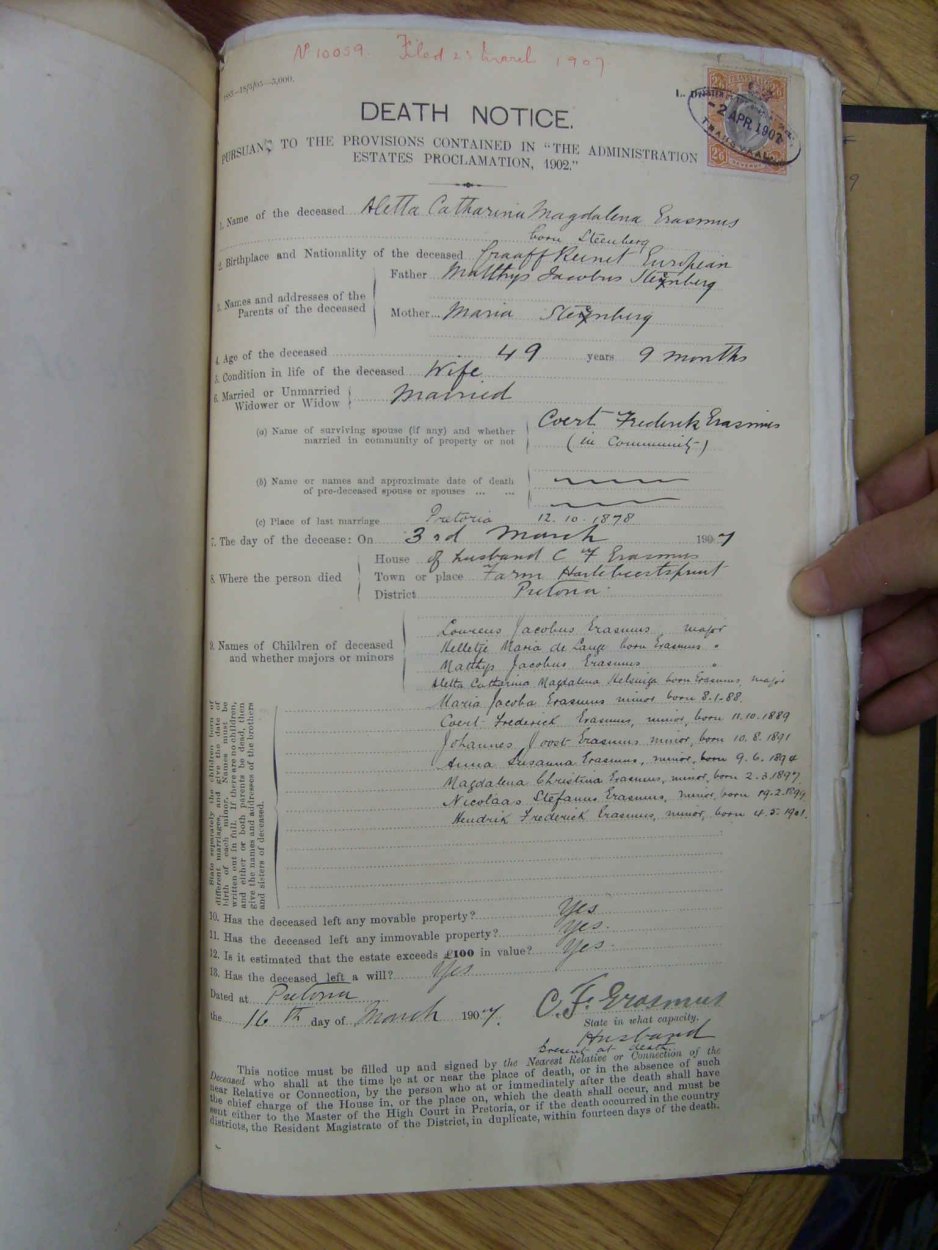 No 10059. Filed 23 March 1907
—18/3/05—5,000.
2/6 2/6
-2 APR. 1907
TRANSVAAL
2/6 REVENUE 2/6
DEATH NOTICE.
PURSUANT TO THE PROVISIONS CONTAINED IN "THE ADMINISTRATION
ESTATES PROCLAMATION, 1902."
1. Name of the deceased Aletta Catharina Magdalena Erasmus
born Steenberg
2. Birthplace and Nationality of the deceased Graaff Reinet European
3. Names and addresses of the Parents of the deceased
Father Matthys Jacobus Steenberg
Mother Maria Steenberg
4. Age of the deceased 49 years 9 months
5. Condition in life of the deceased Wife
6. Married or Unmarried
Widower or Widow Married
(a) Name of surviving spouse (if any) and whether
married in community of property or not
Coert Frederik Erasmus
(in Community)
(b) Name or names and approximate date of death
of pre-deceased spouse or spouses ... ...
(c) Place of last marriage Pretoria 12.10.1878
7. The day of the decease: On 3rd March 1907
8. Where the person died
House of husband C F Erasmus
Town or place Farm Hartebeestspruit
District Pretoria
9. Names of Children of deceased
and whether majors or minors
Lourens Jacobus Erasmus major
Helletje Maria de Lange born Erasmus "
Matthys Jacobus Erasmus "
Aletta Catharina Magdalena born Erasmus major
Maria Jacoba Erasmus minor born 8.1.88
Coert Frederick Erasmus, minor, born 11.10.1889
Johannes Joost Erasmus minor, born 10.8.1891
Anna Susanna Erasmus, minor, born 9.6.1894
Magdalena Christina Erasmus, minor, born 2.3.1897
Nicolaas Stefanus Erasmus, minor, born 19.2.1899
Hendrik Frederick Erasmus, minor, born 4.5.1901.
State separately the children born of
different marriages, and give the date of
birth of each minor. Names must be
written out in full. If there are no children,
and either or both parents be dead, then
give the names and addresses of the brothers
and sisters of deceased.
10. Has the deceased left any movable property? Yes.
11. Has the deceased left any immovable property? Yes.
12. Is it estimated that the estate exceeds £100 in value? Yes.
13. Has the deceased left a will? Yes
Dated at Pretoria
the 16th day of March 1907.
C. F. Erasmus
State in what capacity.
Husband
present at death.
This notice must be filled up and signed by the Nearest Relative or Connection of the
Deceased who shall at the time be at or near the place of death, or in the absence of such
near Relative or Connection, by the person who at or immediately after the death shall have
the chief charge of the House in, or the place on, which the death shall occur, and must be
sent either to the Master of the High Court in Pretoria, or if the death occurred in the country
districts, the Resident Magistrate of the District, in duplicate, within fourteen days of the death.